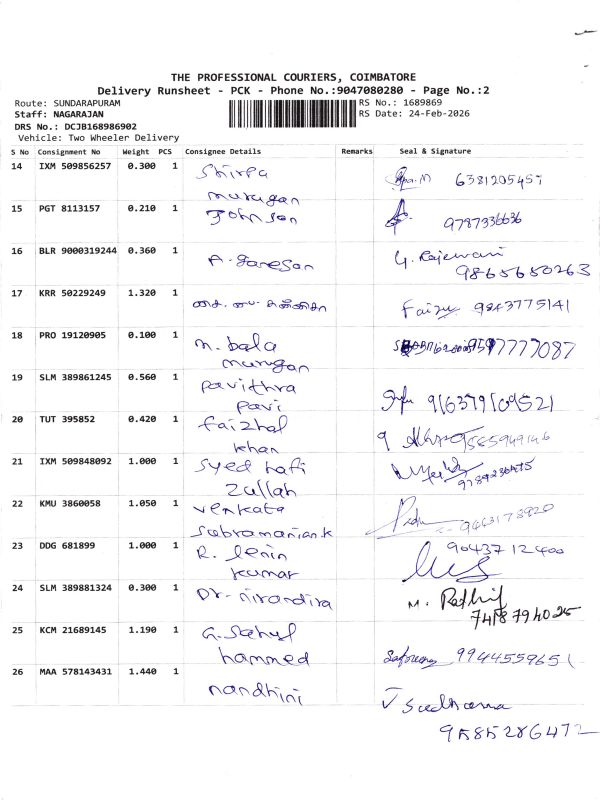 THE PROFESSIONAL COURIERS, COIMBATORE
Delivery Runsheet - PCK - Phone No.:9047080280 - Page No.:2
Route: SUNDARAPURAM
RS No.: 1689869
Staff: NAGARAJAN
RS Date: 24-Feb-2026
DRS No.: DCJB168986902
Vehicle: Two Wheeler Delivery
S No Consignment No Weight PCS Consignee Details Remarks Seal & Signature
14 IXM 509856257 0.300 1 Shirpa
murugan
15 PGT 8113157 0.210 1 Johnson 9787336636
16 BLR 9000319244 0.360 1 A. Ganesan G. Rajewari
9865650263
17 KRR 50229249 1.320 1 Faizu 9843775141
18 PRO 19120905 0.100 1 M. bala
murugan
19 SLM 389861245 0.560 1 Pavithra
Pavi
20 TUT 395852 0.420 1 faizhal
khan
21 IXM 509848092 1.000 1 Syed hafi
zullah
22 KMU 3860058 1.050 1 Venkata
Subramanian.k
23 DDG 681899 1.000 1 R. lenin
kumar
9043712400
24 SLM 389881324 0.300 1 Dr. nirandira
7418794025
25 KCM 21689145 1.190 1
hammed 9944559651
26 MAA 578143431 1.440 1 nandhini
9585286472